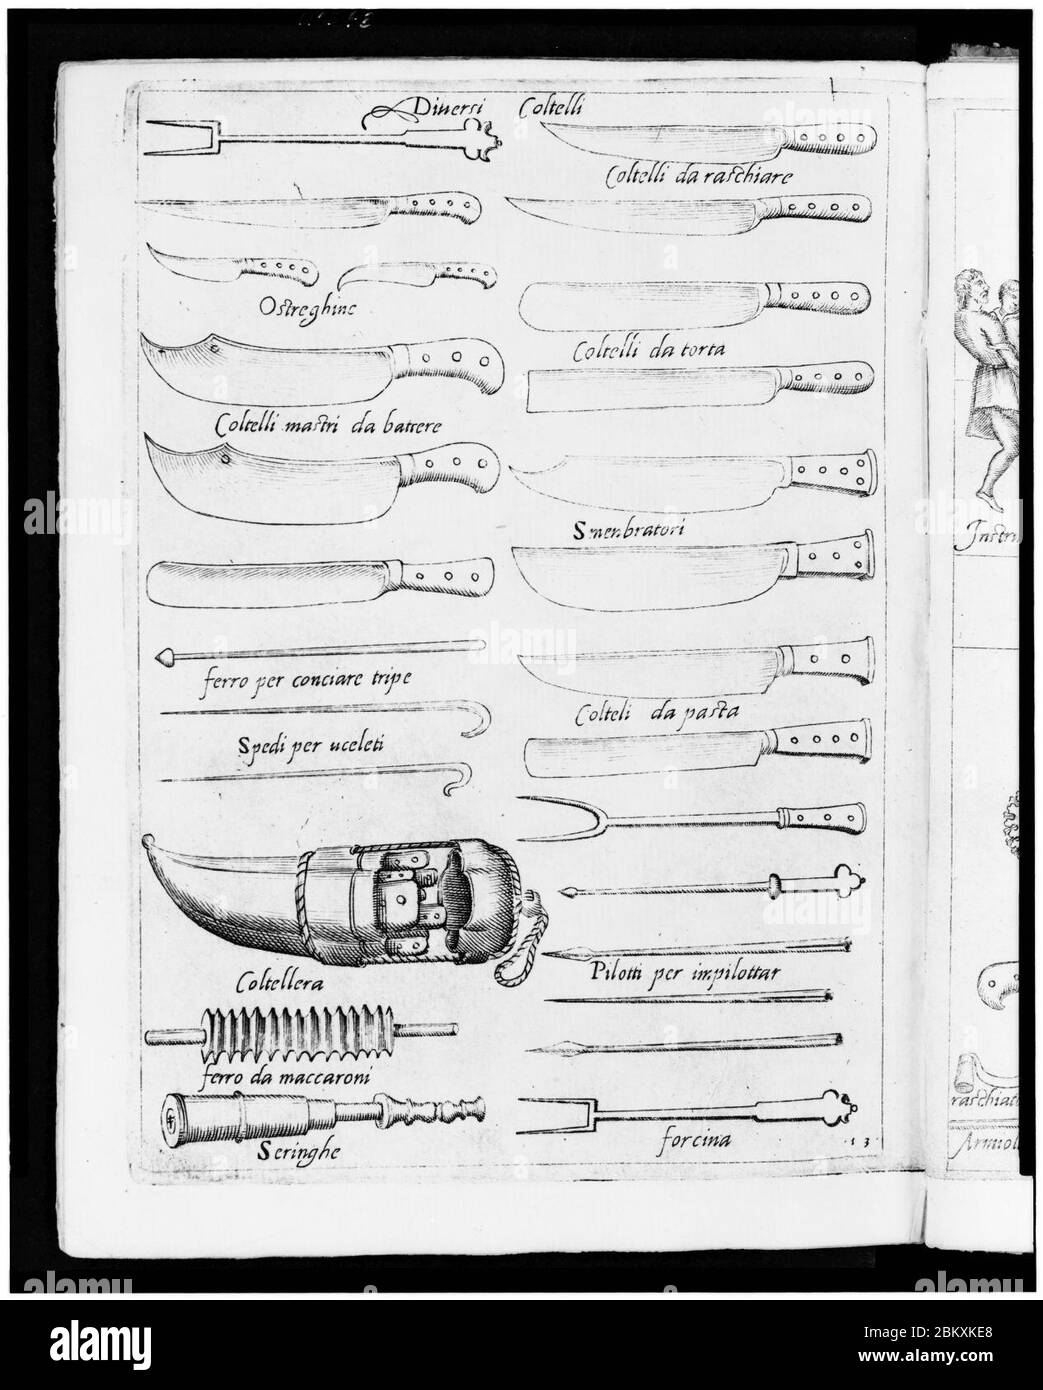 Diuersi Coltelli
Coltelli da raschiare
Ostreghine
Coltelli da torta
Coltelli mastri da battere
Smenbratori
ferro per conciare tripe
Colteli da pasta
Spedi per uceleti
Coltellera
Pilotti per impilottar
ferro da maccaroni
Seringhe
forcina
13
Instru
raschiat
Armol
alamy
Image ID: 2BKXKE8
www.alamy.com